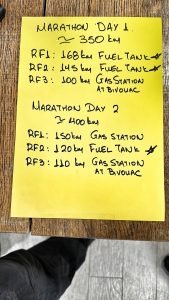 MARATHON DAY 1
≃ 350 km
RF1: 168 km FUEL TANK
RF2: 145 km FUEL TANK
RF3: 100 km GAS STATION
AT BIVOUAC
MARATHON DAY 2
≃ 400 km
RF1: 150 km GAS STATION
RF2: 120 km FUEL TANK
RF3: 110 km GAS STATION
AT BIVOUAC